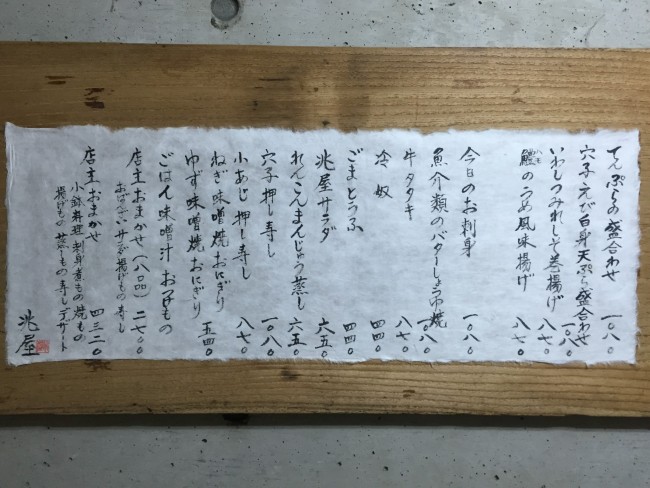 てんぷらの盛合わせ 一〇八〇
穴子えび白身天ぷら盛合わせ 一〇八〇
いわしつみれしそ巻揚げ 八七〇
鱧のうめ風味揚げ 八七〇
ハモ
今日のお刺身 一〇八〇
魚介類のバターしょうゆ焼 一〇八〇
牛タタキ 八七〇
冷奴 四四〇
ごまとうふ 四四〇
兆屋サラダ 六五〇
れんこんまんじゅう蒸し 六五〇
穴子押し寿し 一〇八〇
小あじ押し寿し 八七〇
ねぎ味噌焼おにぎり
ゆず味噌焼おにぎり 五四〇
ごはん味噌汁おつけもの
店主おまかせ(八品) 二七〇〇
おばんざいサラダ揚げもの寿し
店主おまかせ 四三二〇
小鉢料理刺身煮もの焼もの
揚げもの蒸しもの寿しデザート
兆屋